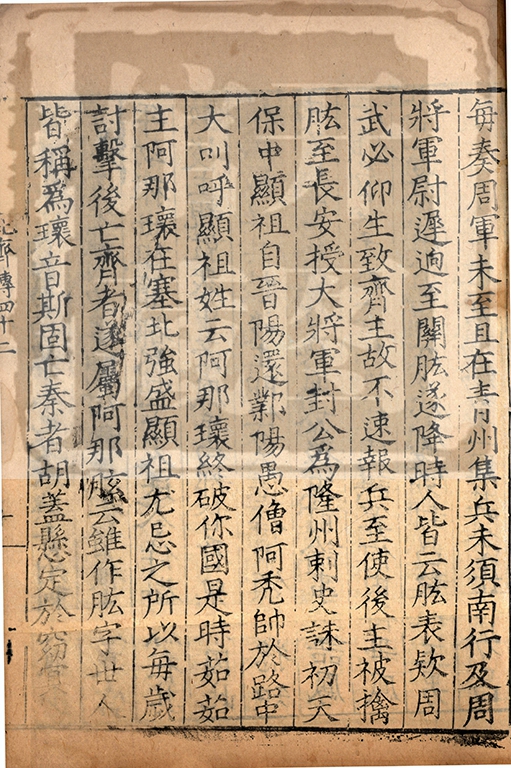 每奏周軍未至且在青州集兵未須南行及周
將軍尉遲迥至關肱遂降時人皆云肱表欵周
武必仰生致齊主故不速報兵至使後主被擒
肱至長安授大將軍封公爲隆州刺史誅初天
保中顯祖自晉陽還鄴陽愚僧阿禿帥於路中
大叫呼顯祖姓云阿那瓌終破你國是時茹茹
主阿那瓌在塞北強盛顯祖尤忌之所以每歲
討擊後亡齊者遂屬阿那肱云雖作肱字世人
皆稱爲瓌音斯固亡秦者胡蓋懸定於窈冥
傳四十二